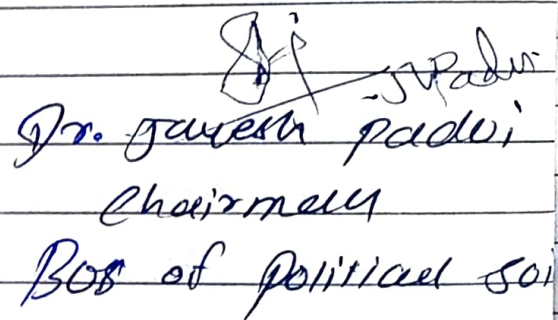 Dr. Jayesh Padvi
Chairman
BOS of Political Sci